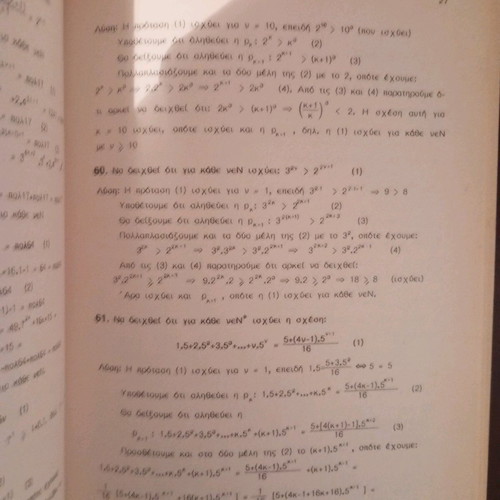 27
Λύση: Η πρόταση (1) ισχύει για ν = 10, επειδή 2¹⁰ > 10³ (που ισχύει)
Υποθέτουμε ότι αληθεύει η pκ: 2^κ > κ³ (2)
Θα δείξουμε ότι αληθεύει η pκ₊₁: 2^κ+1 > (κ+1)³ (3)
Πολλαπλασιάζουμε και τα δύο μέλη της (2) με το 2, οπότε έχουμε:
2^κ > κ³ ⇒ 2·2^κ > 2κ³ ⇒ 2^κ+1 > 2κ³ (4). Από τις (3) και (4) παρατηρούμε ό-
τι αρκεί να δειχθεί ότι: 2κ³ > (κ+1)³ ⇒ (κ+1/κ)³ < 2. Η σχέση αυτή για
κ = 10 ισχύει, οπότε ισχύει και η pκ₊₁, δηλ. η (1) ισχύει για κάθε νεΝ
με ν ⩾ 10
60. Να δειχθεί ότι για κάθε νεΝ ισχύει: 3^2ν > 2^2ν+1 (1)
Λύση: Η πρόταση (1) ισχύει για ν = 1, επειδή 3^2·1 > 2^2·1+1 ⇒ 9 > 8
Υποθέτουμε ότι αληθεύει η pκ: 3^2κ > 2^2κ+1 (2)
Θα δείξουμε ότι αληθεύει η pκ₊₁: 3^2(κ+1) > 2^2κ+3 (3)
Πολλαπλασιάζουμε και τα δύο μέλη της (2) με το 3², οπότε έχουμε:
3^2κ > 2^2κ+1 ⇒ 3².3^2κ > 3².2^2κ+1 ⇒ 3^2κ+2 > 3².2^2κ+1 (4)
Από τις (3) και (4) παρατηρούμε ότι αρκεί να δειχθεί:
3².2^2κ+1 ⩾ 2^2κ+3 ⇒ 9.2^2κ.2 ⩾ 2^2κ.2³ ⇒ 9.2 ⩾ 2³ ⇒ 18 ⩾ 8 (ισχύει)
Άρα ισχύει και pκ₊₁, οπότε η (1) ισχύει για κάθε νεΝ.
61. Να δειχθεί ότι για κάθε νεΝ* ισχύει η σχέση:
1,5+2,5²+3,5³+...+ν,5^ν = 5+(4ν-1),5^ν+1/16 (1)
Λύση: Η πρόταση (1) ισχύει για ν = 1, επειδή 1,5=5+3,5²/16 ⇔ 5 = 5
Υποθέτουμε ότι αληθεύει η pκ: 1,5+2,5²+...+κ,5^κ = 5+(4κ-1),5^κ+1/16 (2)
Θα δείξουμε ότι αληθεύει η
pκ₊₁: 1,5+2,5²+...+κ,5^κ+(κ+1),5^κ+1 = 5+[4(κ+1)-1],5^κ+2/16 (3)
Προσθέτουμε και στα δύο μέλη της (2) το (κ+1),5^κ+1, οπότε έχουμε:
1,5+2,5²+3,5³+...+κ,5^κ+(κ+1),5^κ+1 = 5+(4κ-1),5^κ+1/16 +(κ+1),5^κ+1 =
1/16 [5+(4κ-1),5^κ+1+16(κ+1),5^κ+1] = 1/16 [5+(4κ-1+16κ+16),5^κ+1] =